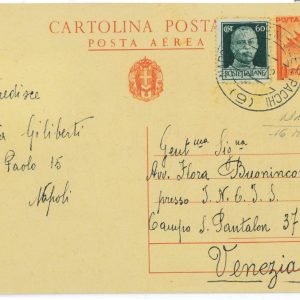 CARTOLINA POSTA
POSTA AEREA
CENT. 60
POSTE ITALIANE
POSTA
PACCHI
(6)
Giliberti
Paolo 15
Napoli
Gent.ma Sig.na
Avv. Flora Buoninco
presso I.N.G.I.S.
Campo S. Pantalon 37
Venezia